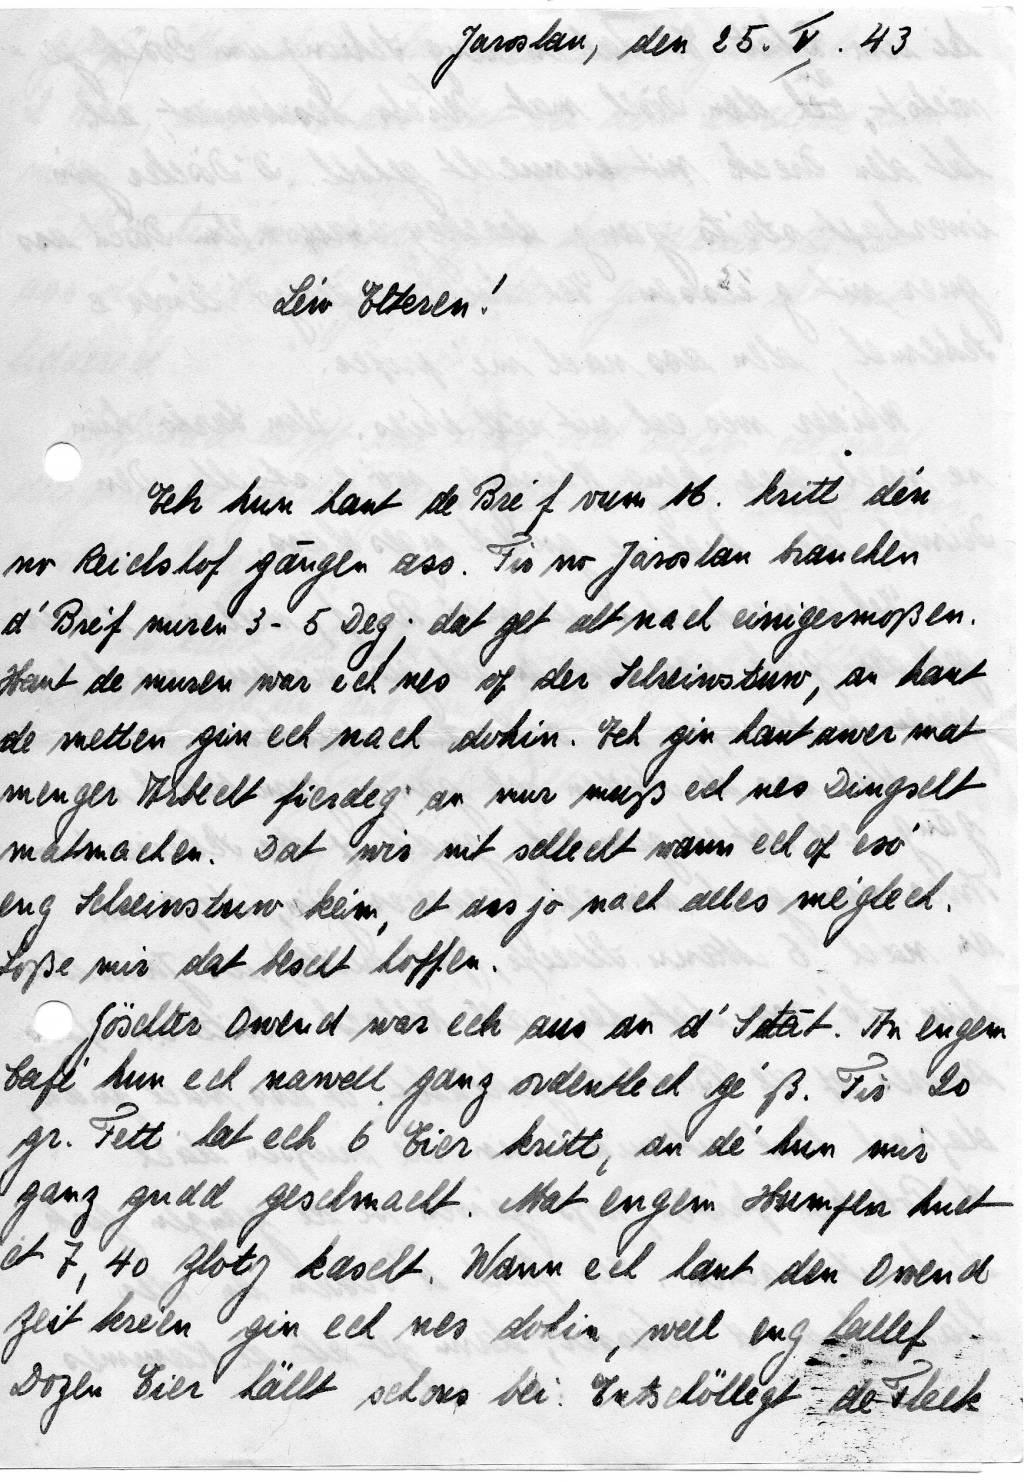 Jaroslau, den 25. V. 43
Léiw Elteren!
Ech hun haut de Bréf vum 16. kritt dén
no Reichshof gängen ass. Fir no Jaroslau brauchen
d' Bréf nuren 3 - 5 Deg; dat get alt nach einigermoßen.
Haut de muren war ech nes of der Schreiwstuw, an haut
de metten gin ech nach dohin. Ech gin haut awer mat
menger Arbecht fierdeg an mur muß ech nes Dingscht
matmachen. Dat wir nit schlecht wann ech of esó
eng Schreiwstuw keim, et ass jo nach alles méglech.
Loße mir dat bescht hoffen.
Göschter Owend war ech aus an d' Stàt. An engem
Café hun ech nawell ganz ordentlech gé ß. Fir 20
gr. Fett hat ech 6 Eier kritt, an dé hun mir
ganz gudd geschmacht. Mat engem Humpen huet
et 7,40 Zloty kascht. Wann ech haut den Owend
Zeit kréien gin ech nes dohin, well eng hallef
Dozen Eier hällt schons bei. Entschöllegt de Fleck